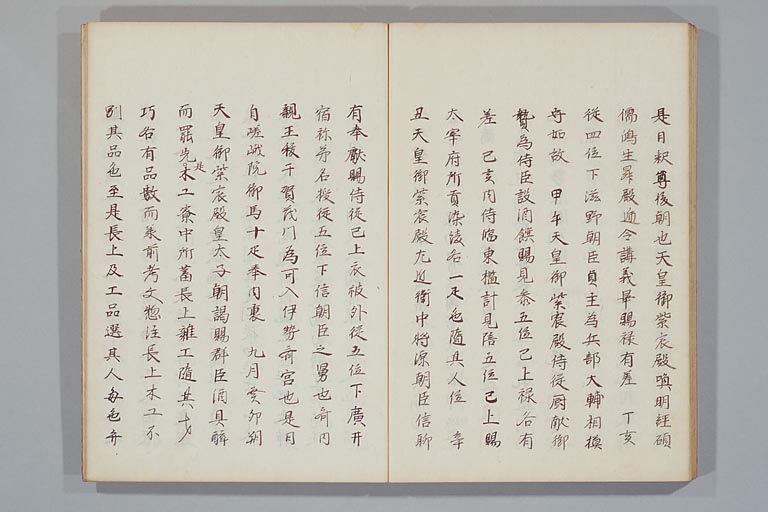 是日釈尊後朝也天皇御紫宸殿喚明経碩
儒鴻生昇殿逓令講義畢賜禄有差　丁亥
従四位下滋野朝臣貞主為兵部大輔相摸
守如故　甲午天皇御紫宸殿侍従厨献御
贄為侍臣設酒饌賜見参五位已上禄各有
差　己亥内侍臨東檻計見陪五位已上賜
太宰府所貢染綾各一疋也随其人位　辛
丑天皇御紫宸殿左近衛中将源朝臣信聊
有奉献賜侍従已上衣被外従五位下廣井
宿祢弟名授従五位下信朝臣之舅也斎内
親王禊于賀茂川為可入伊勢斎宮也是日
自嵯峨院御馬十疋奉内裏　九月癸卯朔
天皇御紫宸殿皇太子朝謁賜群臣酒具酔
而罷先是木工寮中所蓄長上雑工随其才
巧各有品数而年前考文惣注長上木工不
別其品色至是長上及工品選其人毎色弁